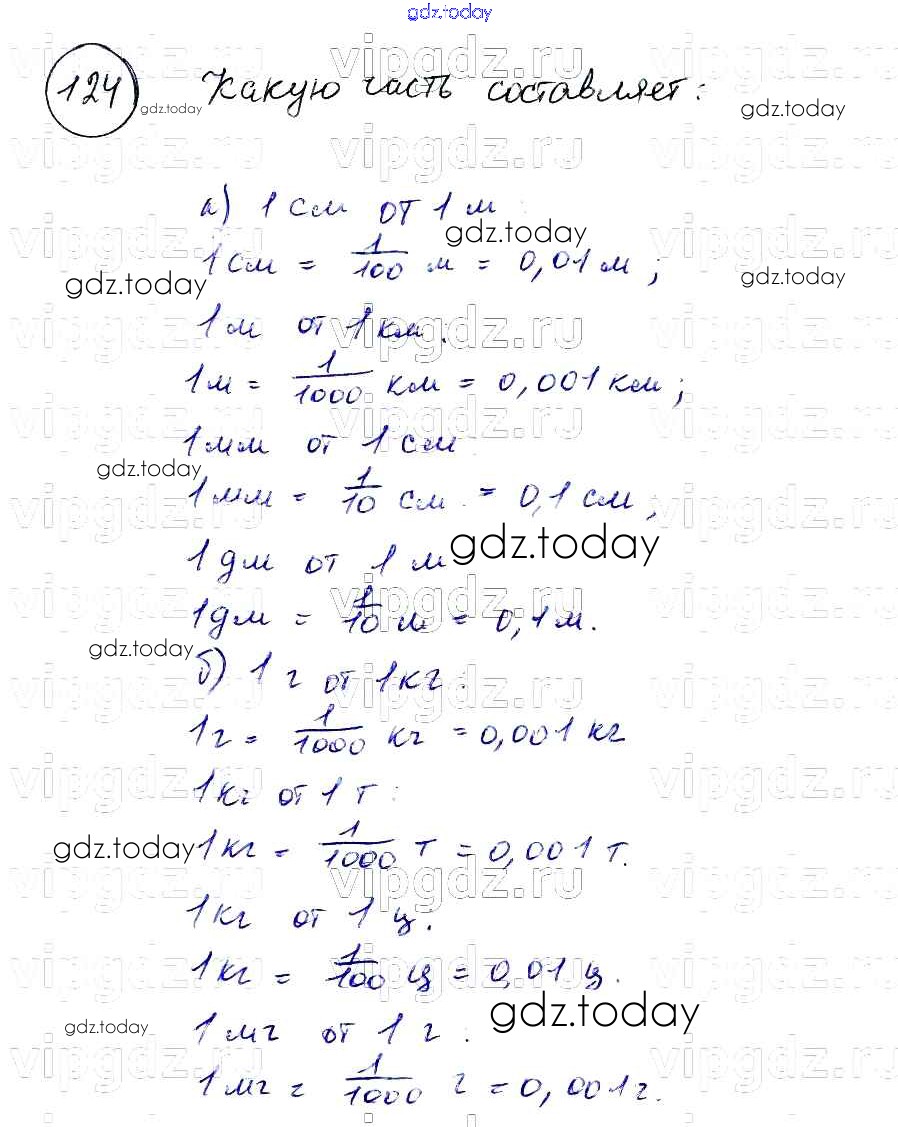 gdz.today
124 Какую часть составляет:
gdz.today gdz.today
vipgdz.ru vipgdz.ru vipgdz.ru
а) 1 см от 1 м
gdz.today
1 см = 1/100 м = 0,01 м ;
gdz.today gdz.today
1 м от 1 км.
1 м = 1/1000 км = 0,001 км ;
1 мм от 1 см
gdz.today
1 мм = 1/10 см = 0,1 см ;
gdz.today
1 дм от 1 м
1 дм = 1/10 м = 0,1 м.
gdz.today
б) 1 г от 1 кг :
1 г = 1/1000 кг = 0,001 кг
1 кг от 1 т :
gdz.today
1 кг = 1/1000 т = 0,001 т.
1 кг от 1 ц.
1 кг = 1/100 ц = 0,01 ц.
gdz.today gdz.today
1 мг от 1 г :
1 мг = 1/1000 г = 0,001 г.